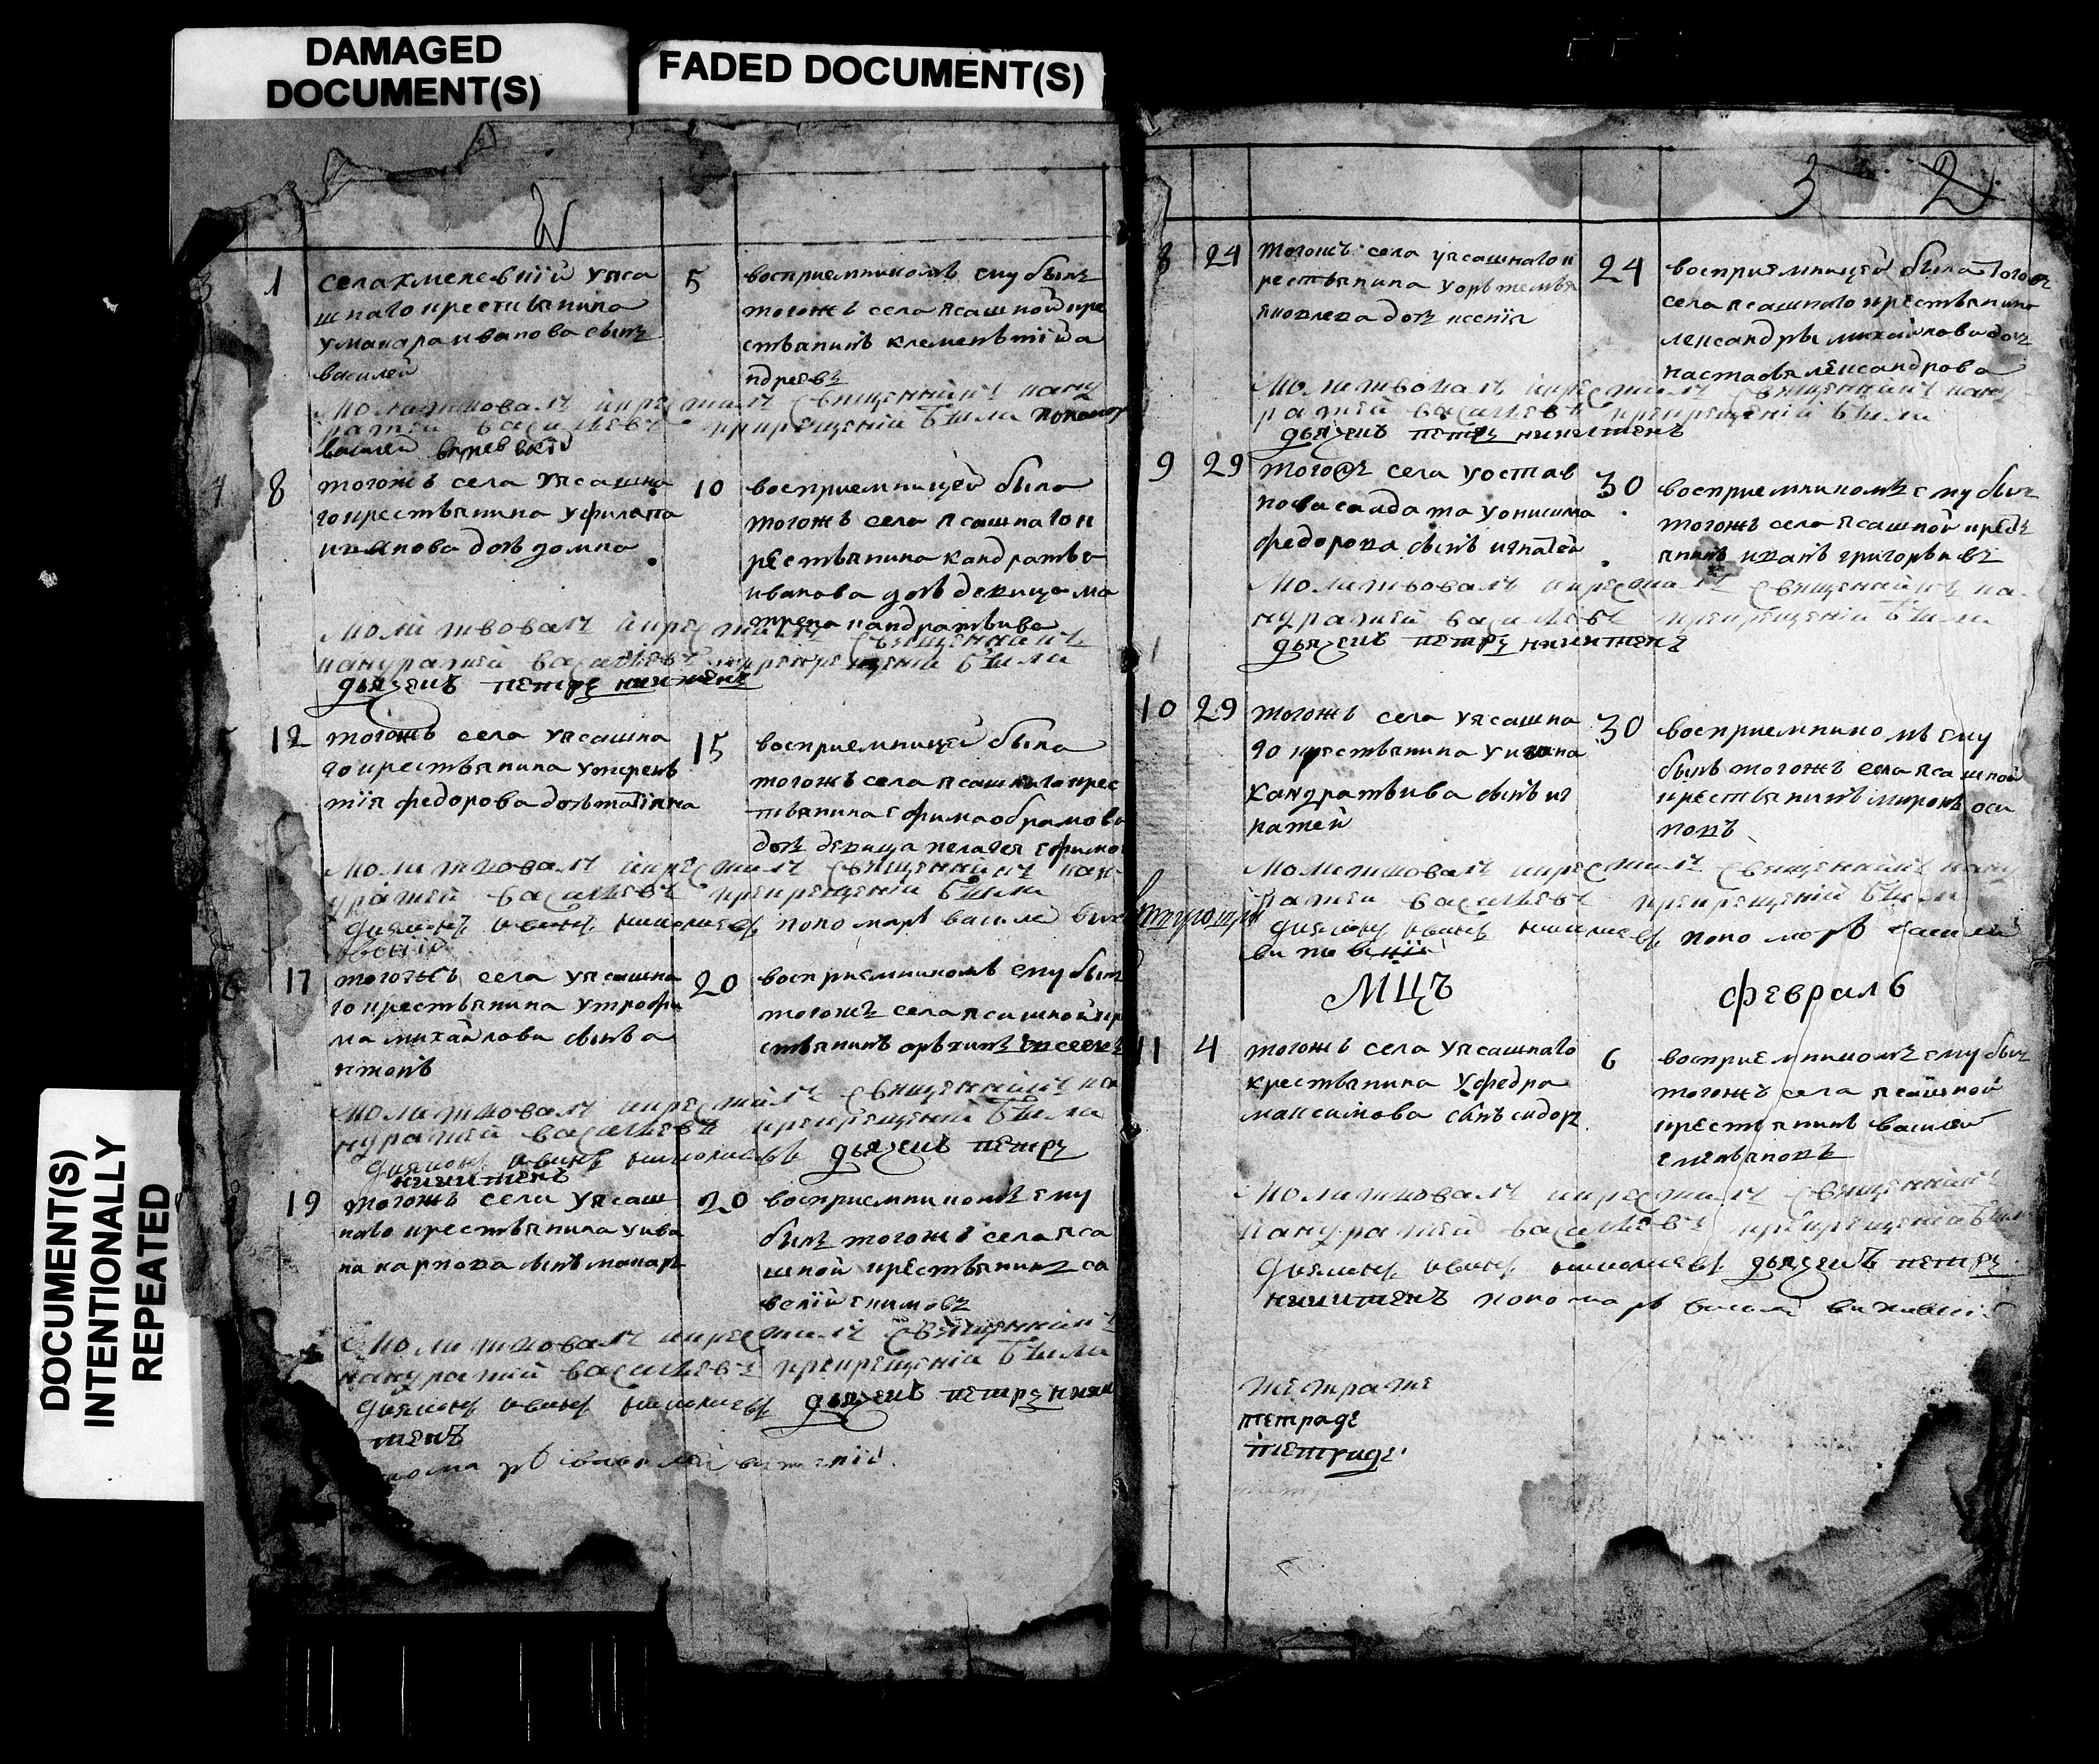 DAMAGED
DOCUMENT(S)
FADED DOCUMENT(S)
DOCUMENT(S)
INTENTIONALLY
REPEATED
3
1
села хмелевкiй уяса
шнаго крестьянина
у макара иванова сынъ
василей
5
восприемникомъ ему былъ
тогожъ села ясашной кре
стьянинъ клементiй а
ндреевъ
молитвовалъ икрестилъ священникъ кану
ратей васильевъ прикрещенiи были пономор
василей
4
8
тогожъ села уясашна
го крестьянина уфилата
иванова дочь домна
10
восприемницей была
тогожъ села ясашнаго к
рестьянина кандратья
иванова дочь девица ма
трена кандратьива
молитвовалъ икрестилъ священникъ
кануратей васильевъ прикрещенiи были
дьячекъ петръ никитенъ
12
тогожъ села уясашна
го крестьянина утерень
тiя федорова дочь татiяна
15
восприемницей была
тогожъ села ясашнаго крес
тьянина ефима обрамова
дочь девица пелагея ефимо
молитвовалъ икрестилъ священникъ кан
уратей васильевъ прикрещенiи были
диаконъ иванъ николаевъ пономарь василей
17
тогожъ села уясашна
го крестьянина утрофи
ма михайлова сынъ а
нтонъ
20
восприемникомъ ему былъ
тогожъ села ясашной кр
стьянинъ
молитвовалъ икрестилъ священникъ ка
нуратей васильевъ прикрещенiи были
диаконъ иванъ николаевъ дьячекъ петръ
никитенъ
19
тогожъ села уясаш
наго крестьянина уива
на карпова сынъ макаръ
20
восприемникомъ ему
былъ тогожъ села яса
шной крестьянинъ са
велiй екимовъ
молитвовалъ икрестилъ священникъ
кануратей васильевъ прикрещенiи были
диаконъ иванъ николаевъ дьячекъ петръ ники
тенъ
3 2
8
24
тогожъ села уясашнаго к
рестьянина уортемья
яковлева дочь ксенiя
24
восприемницей была тогожъ
села ясашнаго крестьянина
лександры михайлова дочь
настасья лександрова
молитвовалъ икрестилъ священникъ кану
ратей васильевъ прикрещенiи были
дьячекъ петръ никитенъ
9
29
тогожъ села уостав
нова салдата уонисима
федорова сынъ игнатей
30
восприемникомъ ему былъ
тогожъ села ясашной кресть
янинъ иванъ григорьивъ
молитвовалъ икрестилъ священникъ ка
нуратей васильевъ прикрещенiи были
дьячекъ петръ никитенъ
10
29
тогожъ села уясашна
го крестьянина уивана
кандратьива сынъ иг
натей
30
восприемникомъ ему
былъ тогожъ села ясашной
крестьянинъ миронъ оси
повъ
молитвовалъ икрестилъ священникъ кану
ратей васильевъ прикрещенiи были
диаконъ иванъ николаевъ пономарь василей
МЦЪ февраль
11
4
тогожъ села уясашнаго
крестьянина уфедра
максимова сынъ сидоръ
6
восприемникомъ ему былъ
тогожъ села ясашной
крестьянинъ василей
емельяновъ
молитвовалъ икрестилъ священникъ
кануратей васильевъ прикрещенiи были
диаконъ иванъ николаевъ дьячекъ петръ
никитенъ пономарь василей
тетраде
тетраде